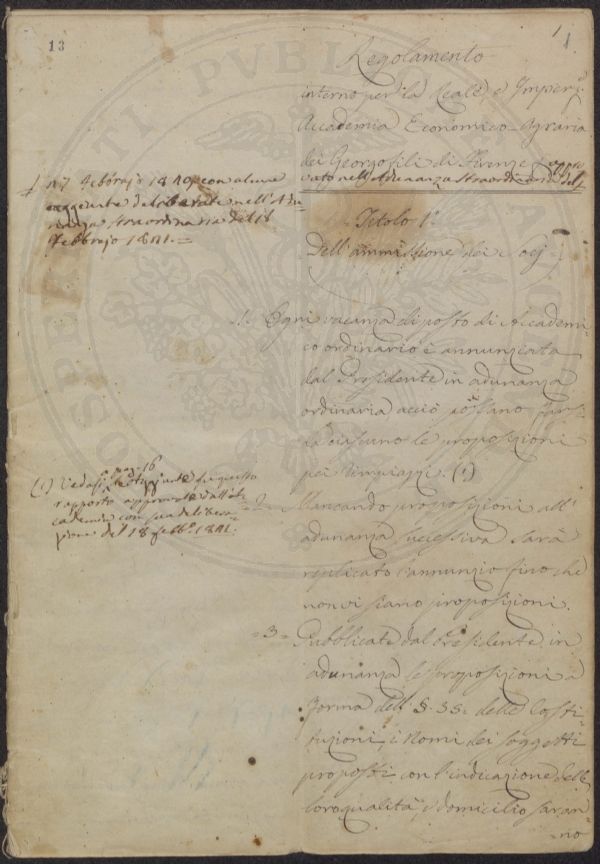 13
1
Regolamento
interno per la Reale, e Imper:
Accademia Economico-Agraria
dei Georgofili di Firenze appro
vato nell'Adunanza straordinaria del
7 Febbrajo 1840, con alcune
aggiunte deliberate nell'Adu-
nanza straordinaria del 18
Febbrajo 1841.=
Titolo 1º
Dell'ammissione dei Socj
1. Ogni vacanza di posto di Accademi-
co ordinario è annunziata
dal Presidente in adunanza
ordinaria acciò possano farsi
da ciascuno le proposizioni
pei rimpiazzi. (1)
(1) Vedasi a pag. 16 le aggiunte su questo
rapporto approvate dall'Ac-
cademia con sua delibera-
zione del 18 febb.º 1841.
2. Mancando proposizioni all'
adunanza successiva sarà
replicato l'annunzio fino che
non vi siano proposizioni.
=3= Pubblicate dal Presidente in
adunanza le proposizioni a
forma dell'§. 33. delle Costi-
tuzioni, i Nomi dei soggetti
proposti con l'indicazione delle
loro qualità, e domicilio saran-
no